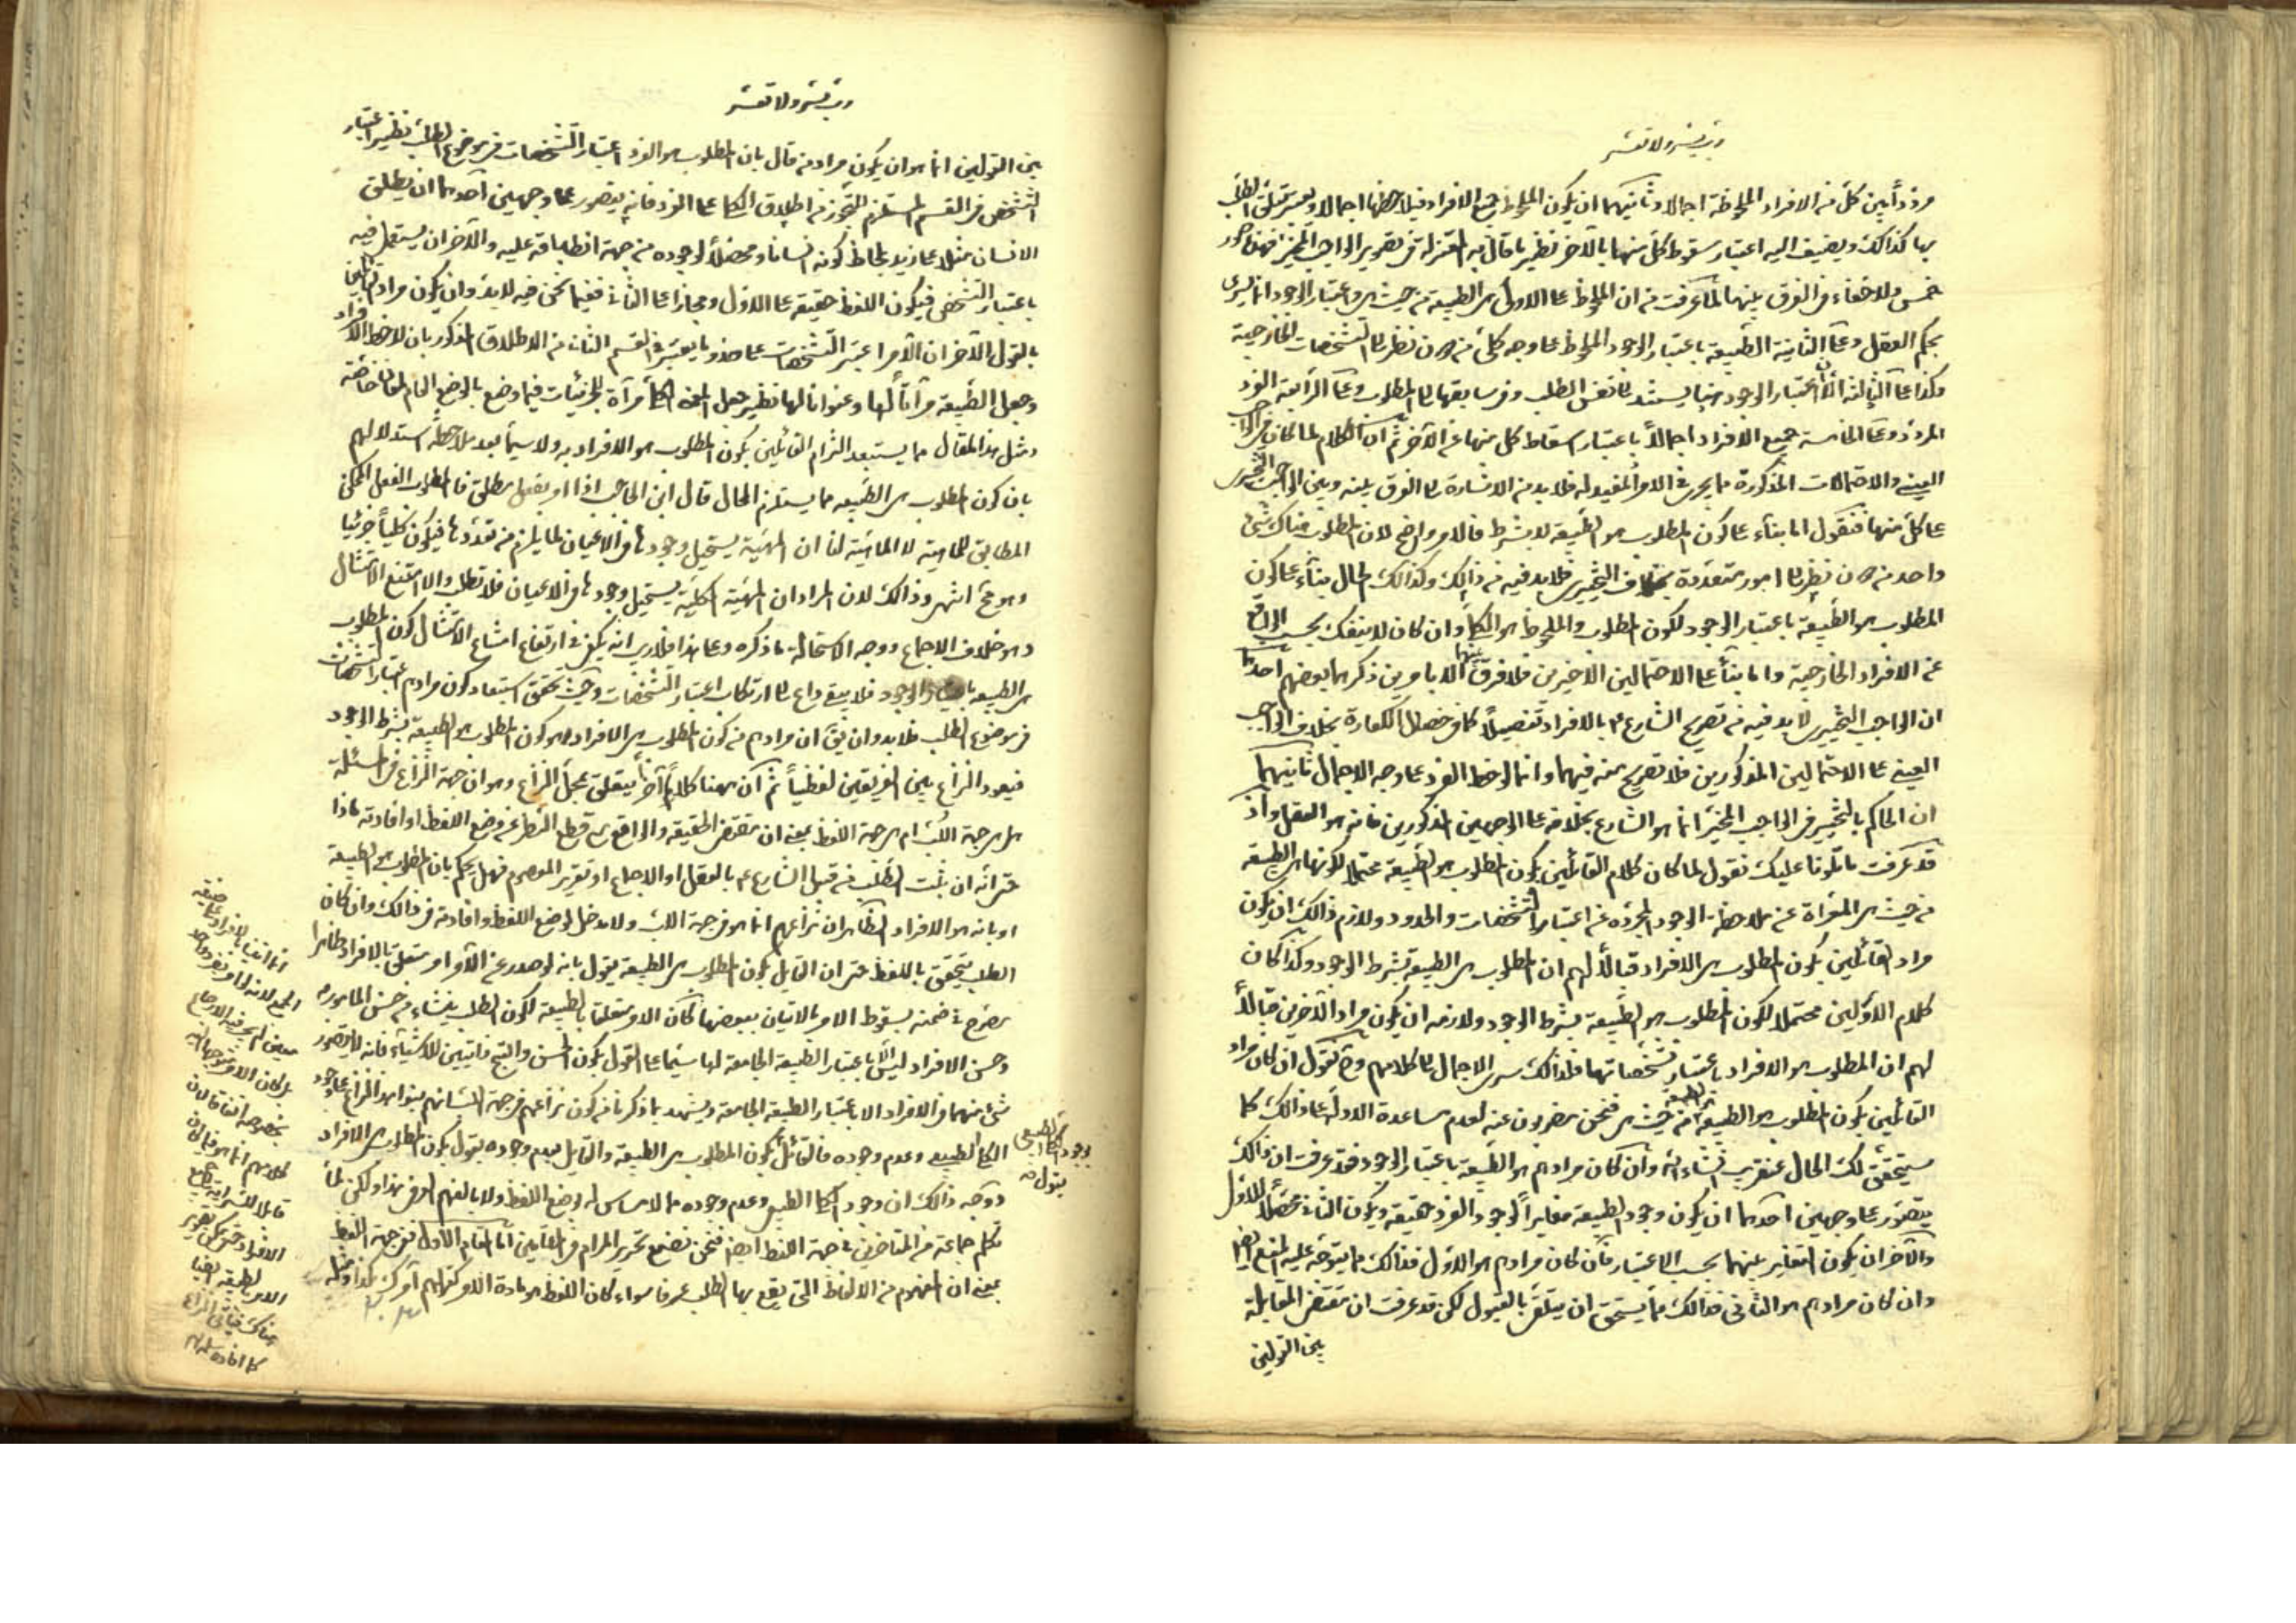 رب يسر ولا تعسر
مردداً بين كل من الافراد الملحوظة اجمالا وثانيهما ان يكون الملحوظ جميع الافراد فيلاحظها اجمالا ويعتبر تعلق الطلب
بها كذالك ويضيف اليه اعتبار سقوط كل منها بالآخر نظير ما قال به المعتزلة في تقرير الواجب المخير فهذه صور
خمس ولا خفاء في الفرق بينها لما عرفت من ان الملحوظ على الاولى هي الطبيعة من حيث هي واعتبار الوجود انما يسرى
بحكم العقل وعلى الثانية الطبيعة باعتبار الوجود الملحوظ على وجه كلي من دون نظر الى التشخصات الخارجية
وكذا على الثالثة الا ان اعتبار الوجود هنا يستند الى نفس الطلب وفي سابقها الى المطلوب وعلى الرابعة الفرد
المردد وعلى الخامسة جميع الافراد اجمالاً باعتبار اسقاط كل منها عن الآخر ثم ان الكلام لما كان في الواجب
العيني والاحتمالات المذكورة مما يجرى في الامر المفيد له فلا بد من الاشارة الى الفرق بينه وبين الواجب التخييرى
على كل منها فنقول اما بناء على كون المطلوب هو الطبيعة لا بشرط فالامر واضح لان المطلوب هناك شيء
واحد من دون نظر الى امور متعددة بخلاف التخييرى فلا بد فيه من ذالك وكذالك الحال بناء على كون
المطلوب هو الطبيعة باعتبار الوجود لكون المطلوب والملحوظ هو الكلي وان كان لا ينفك بحسب الواقع
عن الافراد الخارجية واما بناءً على الاحتمالين الاخيرين فلا فرق بينهما الا بامرين ذكرهما بعضهم احدهما
ان الواجب التخييرى لا بد فيه من تصريح الشارع ع بالافراد تفصيلاً كما في خصال الكفارة بخلاف الواجب
العيني على الاحتمالين المذكورين فلا تصريح منه فيهما وانما لوحظ الفرد على وجه الاجمال ثانيهما
ان الحاكم بالتخيير في الواجب المخير انما هو الشارع بخلافه على الوجهين المذكورين فانه هو العقل واذ
قد عرفت ما تلونا عليك نقول لما كان كلام القائلين بكون المطلوب هو الطبيعة محتملا لكونها هي الطبيعة
من حيث هي المعراة عن ملاحظة الوجود المجرده عن اعتبار التشخصات والحدود ولازم ذالك ان يكون
مراد القائلين بكون المطلوب هي الافراد قبالاً لهم ان المطلوب هي الطبيعة بشرط الوجود وكذا كان
كلام الاولين محتملا لكون المطلوب هو الطبيعة بشرط الوجود ولازمه ان يكون مراد الآخرين قبالاً
لهم ان المطلوب هو الافراد باعتبار تشخصاتها فلذالك سرى الاجمال الى كلامهم وح نقول ان كان مراد
القائلين بكون المطلوب هو الطبيعة هي الطبيعة من حيث هي فنحن مضربون عنه لعدم مساعدة الادلة على ذالك كما
ستحقق لك الحال عنقريب انشاء الله وان كان مرادهم هو الطبيعة باعتبار الوجود فقد عرفت ان ذالك
يتصور على وجهين احدهما ان يكون وجود الطبيعة مغايراً لوجود الفرد حقيقة ويكون الثاني محصلاً للاول
والآخر ان يكون التغاير بينهما بحسب الاعتبار فان كان مرادهم هو الاول فذالك مما يتوجه عليه المنع ايضا
وان كان مرادهم هو الثاني فذالك مما يستحق ان يتلقى بالقبول لكن قد عرفت ان مقتضى المقابلة
بين القولين
رب يسر ولا تعسر
بين القولين انما هو ان يكون مراد من قال بان المطلوب هو الفرد اعتبار التشخصات في موضوع الطلب نظير اعتبار
التشخص في القسم المستلزم للتجوز من اطلاق الكلي على الفرد فانه يتصور على وجهين احدهما ان يطلق
الانسان مثلا على زيد بلحاظ كونه انسانا ومحصلاً لوجوده من جهة انطباقه عليه والآخر ان يستعمل فيه
باعتبار التشخص فيكون اللفظ حقيقة على الاول ومجازا على الثاني ففيما نحن فيه لا بد وان يكون مراد القائلين
بالقول الآخر ان الآمر اعتبر التشخصات على حذو ما يعتبر في القسم الثاني من الاطلاق المذكور بان لاحظ الافراد
وجعل الطبيعة مرآتاً لها وعنوانا لها نظير جعل المعنى الكلي مرآة للجزئيات فيما وضع بالوضع العام لمعان خاصة
ومثل هذا المقال مما يستبعد التزام القائلين بكون المطلوب هو الافراد به ولا سيما بعد ملاحظة استدلالهم
بان كون المطلوب هي الطبيعة مما يستلزم المحال قال ابن الحاجب اذا امر بفعل مطلق فالمطلوب الفعل الممكن
المطابق للماهية لا الماهية لنا ان المهية يستحيل وجودها في الاعيان لما يلزم من تعددها فيكون كلياً جزئيا
وهو مح انتهى وذالك لان المراد ان المهية الكلية يستحيل وجودها في الاعيان فلا تطلب والا امتنع الامتثال
وهو خلاف الاجماع ووجه الاستحالة ما ذكره وعلى هذا فلا ريب انه يكفي في ارتفاع امتناع الامتثال كون المطلوب
هي الطبيعة باعتبار الوجود فلا يبقى داع الى ارتكاب اعتبار التشخصات وحيث تحقق استبعاد كون مرادهم اعتبار التشخصات
في موضوع الطلب فلا بد وان يق ان مرادهم من كون المطلوب هي الافراد هو كون المطلوب هو الطبيعة بشرط الوجود
فيعود النزاع بين الفريقين لفظياً ثم ان ههنا كلاماً آخر يتعلق بمحل النزاع وهو ان جهة النزاع في المسئلة
هل هي جهة اللب ام هي جهة اللفظ بمعنى ان مقتضى الحقيقة والواقع مع قطع النظر عن وضع اللفظ او افادته ماذا
حتى انه ان ثبت الطلب من قبل الشارع ع بالعقل او الاجماع او تقرير المعصوم فهل يحكم بان المطلوب هو الطبيعة
او بانه هو الافراد الظاهر ان نزاعهم انما هو في جهة اللب ولا مدخل لوضع اللفظ وافادته في ذالك وان كان
الطلب يتحقق باللفظ حتى ان القايل بكون المطلوب هي الطبيعة يقول بانه لو صدر عن الآمر امر متعلق بالافراد ظاهرا
يصرح في ضمنه بسقوط الامر بالاتيان ببعضها لكان الامر متعلقا بالطبيعة لكون الطلب ينشاء من حسن المامور به
وحسن الافراد ليس الا باعتبار الطبيعة الجامعة لها سيما على القول بكون الحسن والقبح ذاتيين للاشياء فانه لا يتصور
شيء منهما في الافراد الا باعتبار الطبيعة الجامعة ويشهد بما ذكرنا من كون نزاعهم في جهة اللب انهم بنوا هذا النزاع على وجود
الكلي الطبيعي وعدم وجوده فالقائل بكون المطلوب هي الطبيعة والقايل بعدم وجوده يقول بكون المطلوب هي الافراد
ووجه ذالك ان وجود الكلي الطبيعي وعدم وجوده مما لا مساس له بوضع اللفظ ولا بالفهم العرفي هذا ولكن لما
تكلم جماعة من المتاخرين في جهة اللفظ ايضا فنحن نضع تحرير المرام في مقامين اما المقام الاول ففي جهة اللفظ
بمعنى ان المفهوم من الالفاظ التي يقع بها الطلب عرفا سواء كان اللفظ هو مادة الامر كقولهم آمرك بكذا
بوجود الكلي الطبيعي
يقول ص